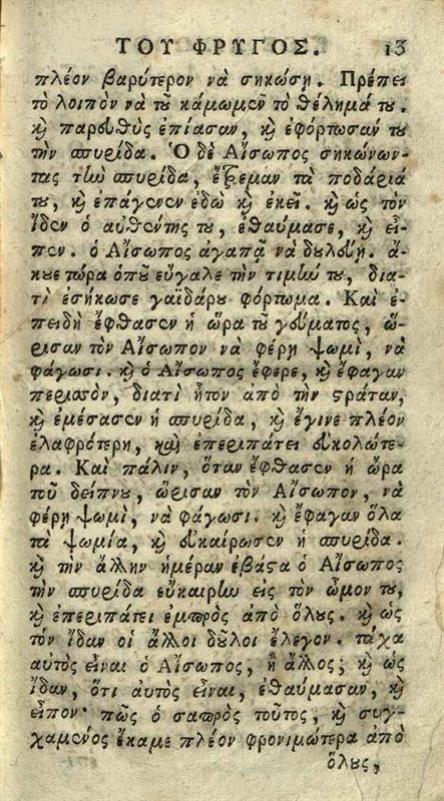 ΤΟΥ ΦΡΥΓΟΣ. 13
πλέον βαρύτερον νὰ σηκώσῃ. Πρέπει
τὸ λοιπὸν νὰ τȣ͂ κάμωμεν τὸ θέλημά τȣ.
ϗ παρευθὺς ἐπίασαν, ϗ ἐφόρτωσάν τȣ
τὴν σπυρίδα. Ὁ δὲ Αἴσωπος σηκώνων-
τας τὴν σπυρίδα, ἔτρεμαν τὰ ποδάριά
τȣ, ϗ ἐπάγενεν ἐδῶ ϗ ἐκεῖ. ϗ ὡς τὸν
ἴδεν ὁ αὐθέντης τȣ, ἐθαύμασε, ϗ εἶ-
πεν. ὁ Αἴσωπος ἀγαπᾷ νὰ δȣλεύῃ. ἄ-
κȣε τώρα ὁπȣ͂ εὔγαλε τὴν τιμήν τȣ, δια-
τὶ ἐσήκωσε γαϊδάρȣ φόρτωμα. Καὶ ἐ-
πειδὴ ἔφθασεν ἡ ὥρα τȣ͂ γεύματος, ὥ-
ρισαν τὸν Αἴσωπον νὰ φέρῃ ψωμὶ, νὰ
φάγωσι. ϗ ὁ Αἴσωπος ἔφερε, ϗ ἔφαγαν
περισσὸν, διατὶ ἦτον ἀπὸ τὴν ϛράταν,
ϗ ἐμέσασεν ἡ σπυρίδα, ϗ ἔγινε πλέον
ἐλαφρότερη, καὶ ἐπεριπάτει εὐκολώτε-
ρα. Καὶ πάλιν, ὅταν ἔφθασεν ἡ ὥρα
τοῦ δείπνȣ, ὥρισαν τὸν Αἴσωπον, νὰ
φέρῃ ψωμὶ, νὰ φάγωσι. ϗ ἔφαγαν ὅλα
τὰ ψωμία, ϗ εὐκαίρωσεν ἡ σπυρίδα.
ϗ τὴν ἄλλην ἡμέραν ἐβάϛα ὁ Αἴσωπος
τὴν σπυρίδα εὐκαιρὴν εἰς τὸν ὦμον τȣ,
ϗ ἐπεριπάτει ἐμπρὸς ἀπὸ ὅλȣς. ϗ ὡς
τὸν ἴδαν οἱ ἄλλοι δȣ͂λοι ἔλεγον. τάχα
αὐτὸς εἶναι ὁ Αἴσωπος, ἢ ἄλλος; ϗ ὡς
ἴδαν, ὅτι αὐτὸς εἶναι, ἐθαύμασαν, ϗ
εἶπον· πῶς ὁ σαπρὸς τοῦτος, ϗ συγ-
χαμενὸς ἔκαμε πλέον φρονιμώτερα ἀπὸ
ὅλȣς,